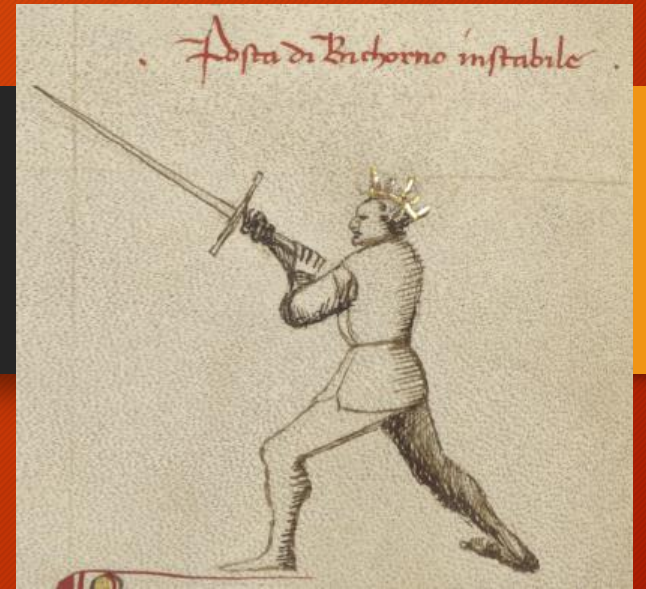 Posta di Bichorno instabile